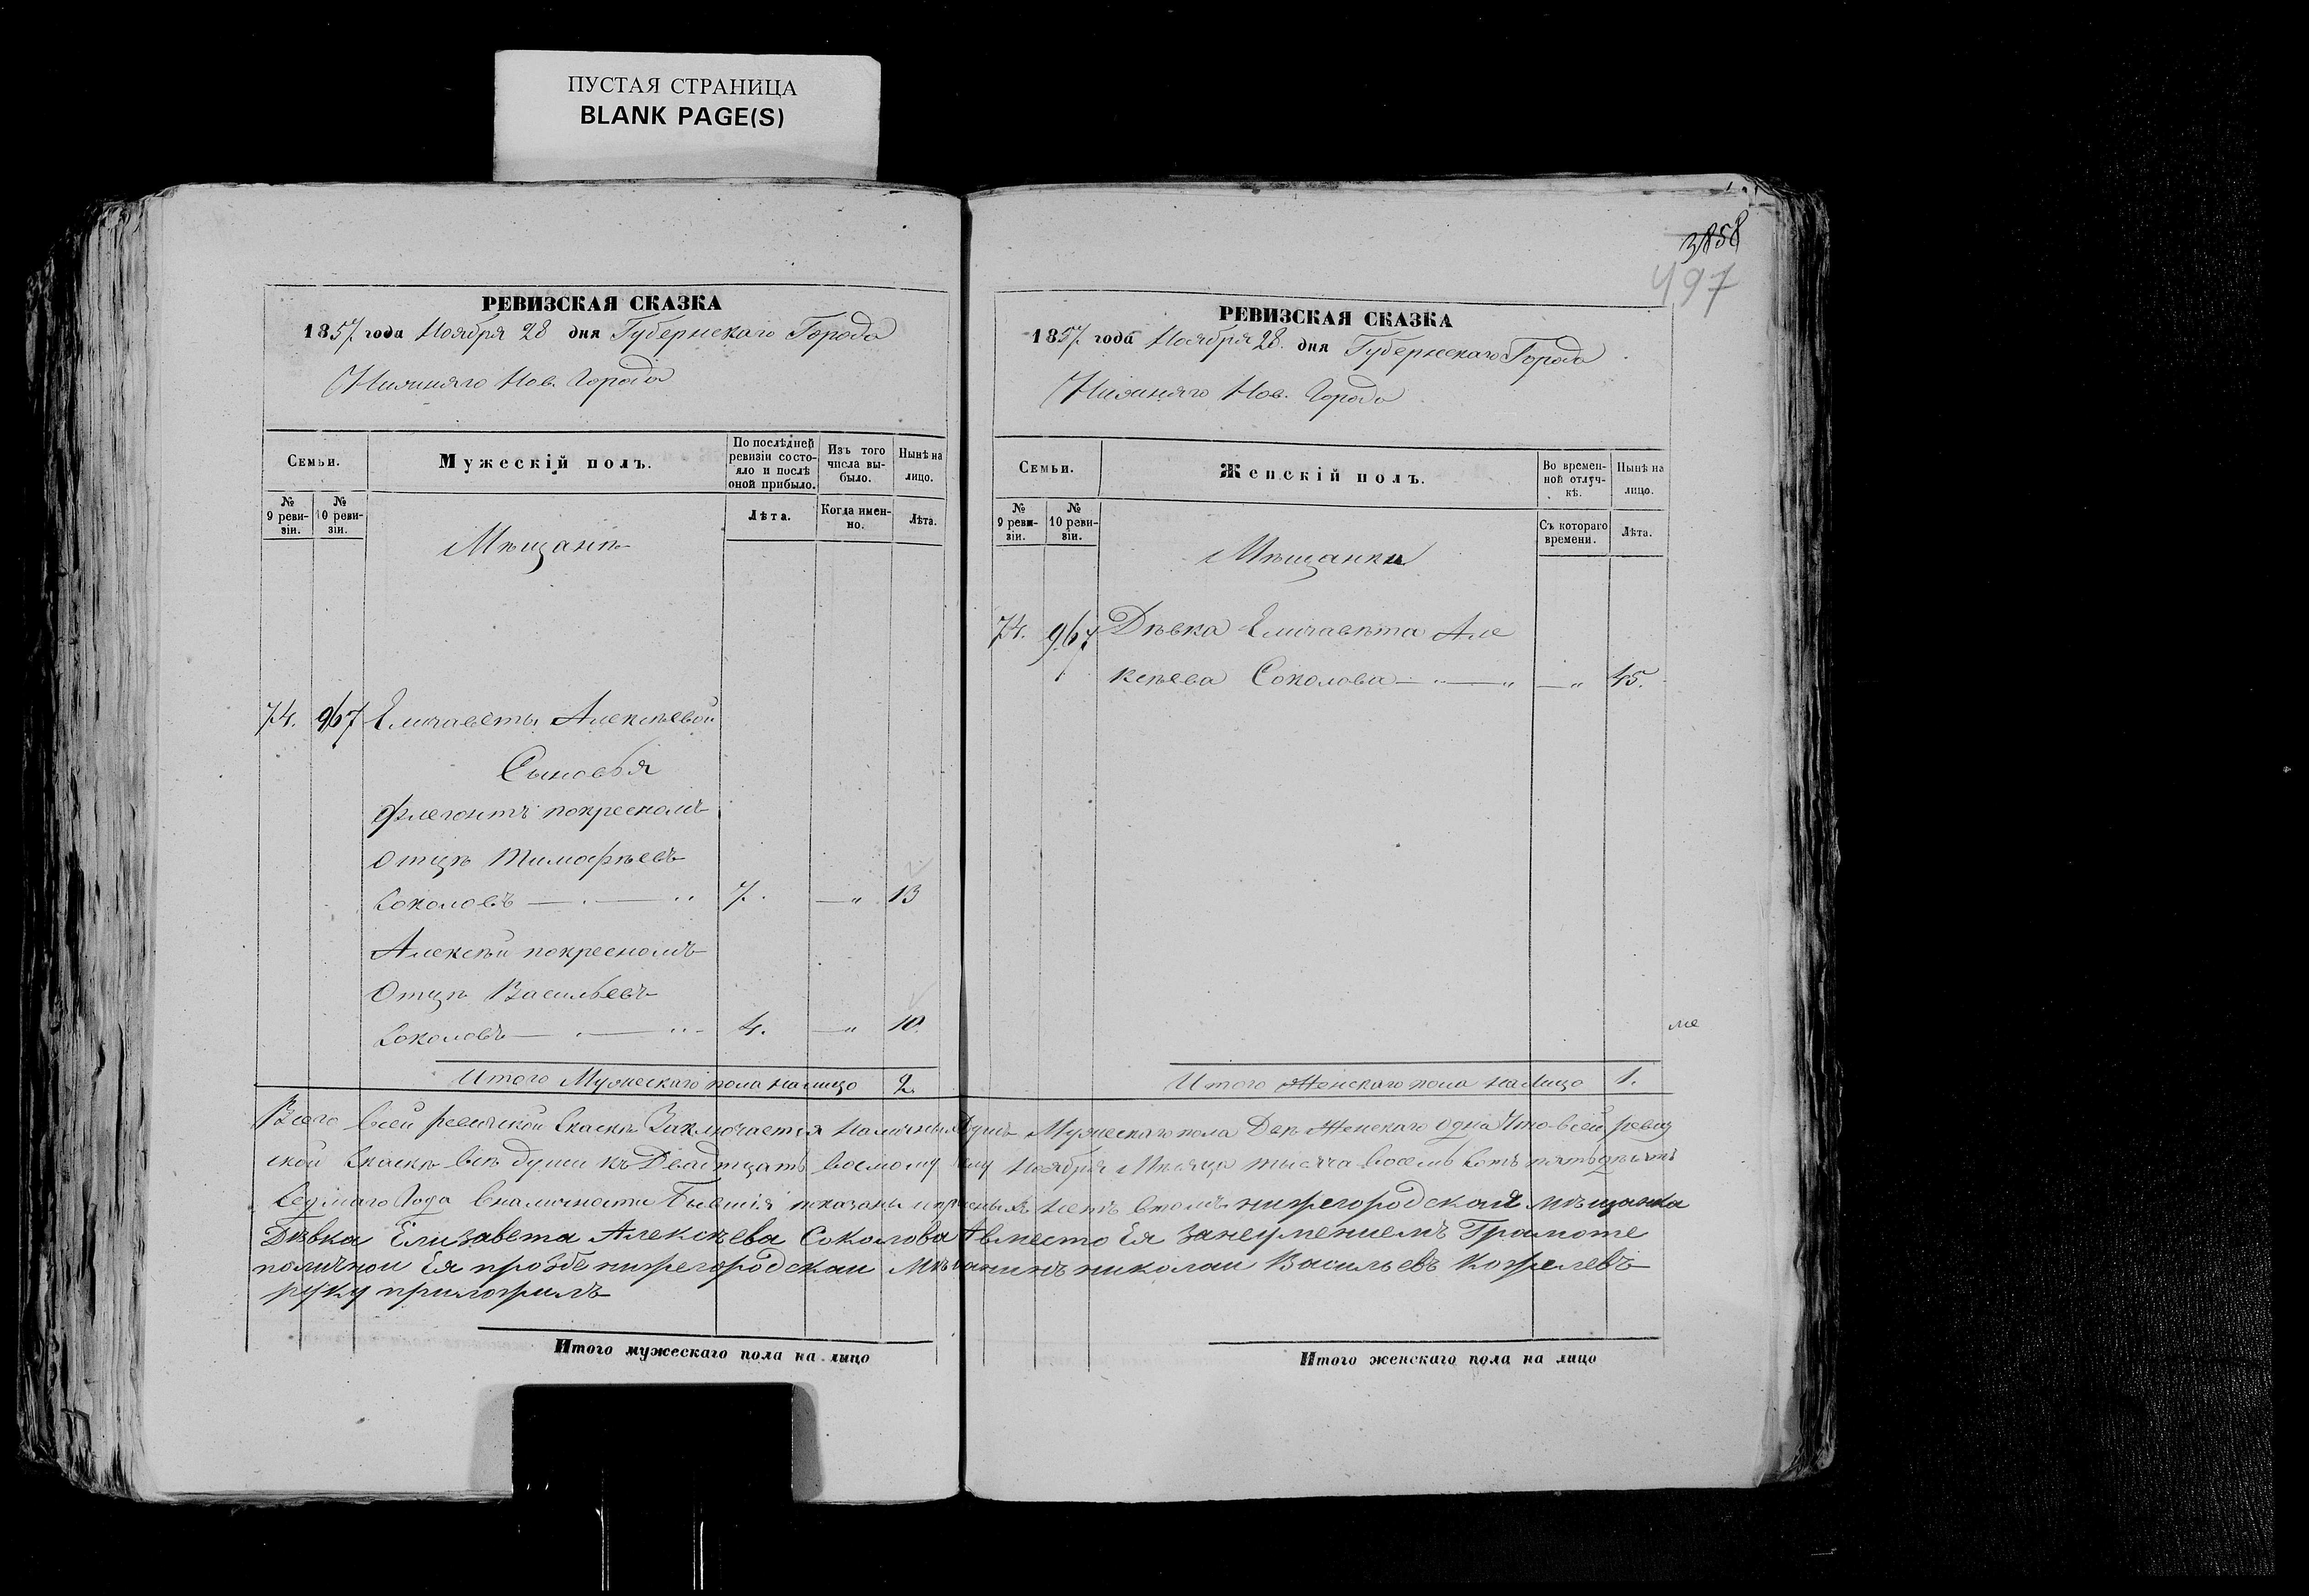 ПУСТАЯ СТРАНИЦА
BLANK PAGE(S)
РЕВИЗСКАЯ СКАЗКА
1857 года Ноября 28 дня Губернскаго Города
Нижняго Нов. Города
Семьи.
Мужескій полъ.
По послѣдней ревизіи состояло и послѣ оной прибыло.
Изъ того числа выбыло.
Нынѣ на лицо.
№ 9 ревизіи.
№ 10 ревизіи.
Лѣта.
Когда именно.
Лѣта.
Мѣщанѣ
74. 967 Елизаветы Алексѣевой
Сыновья
Флегонтъ покресномъ
Отцѣ Тимофѣевъ
Соколовъ — . — „ 7. — „ 13
Алексѣй покресномъ
Отцѣ Васильевъ
Соколовъ — . — „ 4. — „ 10.
Итого Мужескаго пола налицо 2.
3858
497
РЕВИЗСКАЯ СКАЗКА
1857 года Ноября 28. дня Губернскаго Города
Нижняго Нов. Города
Семьи.
Женскій полъ.
Во временной отлучкѣ.
Нынѣ на лицо.
№ 9 ревизіи.
№ 10 ревизіи.
Съ котораго времени.
Лѣта.
Мѣщанки
74. 967 Дѣвка Елизавѣта Але
ксѣева Соколова — „ — „ — „ 45.
ме
Итого Женскаго пола налицо 1.
Всего всей ревизкой Скаскѣ Заключается Наличныхъ Душъ Мужескаго пола Двѣ Женскаго одна Что всей ревиз
ской Скаскѣ всѣ души къ Двадтцать восмому Ноября Мѣсяца тысяча восемь Сотъ пятьдѣсятъ
Седмаго Года вналичности Бывшія показаны и нѣтъ втомъ нижегородская мѣщанка
Дѣвка Елизавета Алексѣева Соколова Авместо Ея Занеуменіемъ Грамоте
поличной Ея прозбе нижегородскаи Мѣщанинъ николаи Васильевъ Кожелевъ
руку приложилъ
Итого мужескаго пола на лицо
Итого женскаго пола на лицо